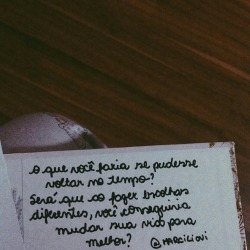 O que você faria se pudesse
voltar no tempo?
Será que ao fazer escolhas
diferentes, você conseguiria
mudar sua vida para
melhor?